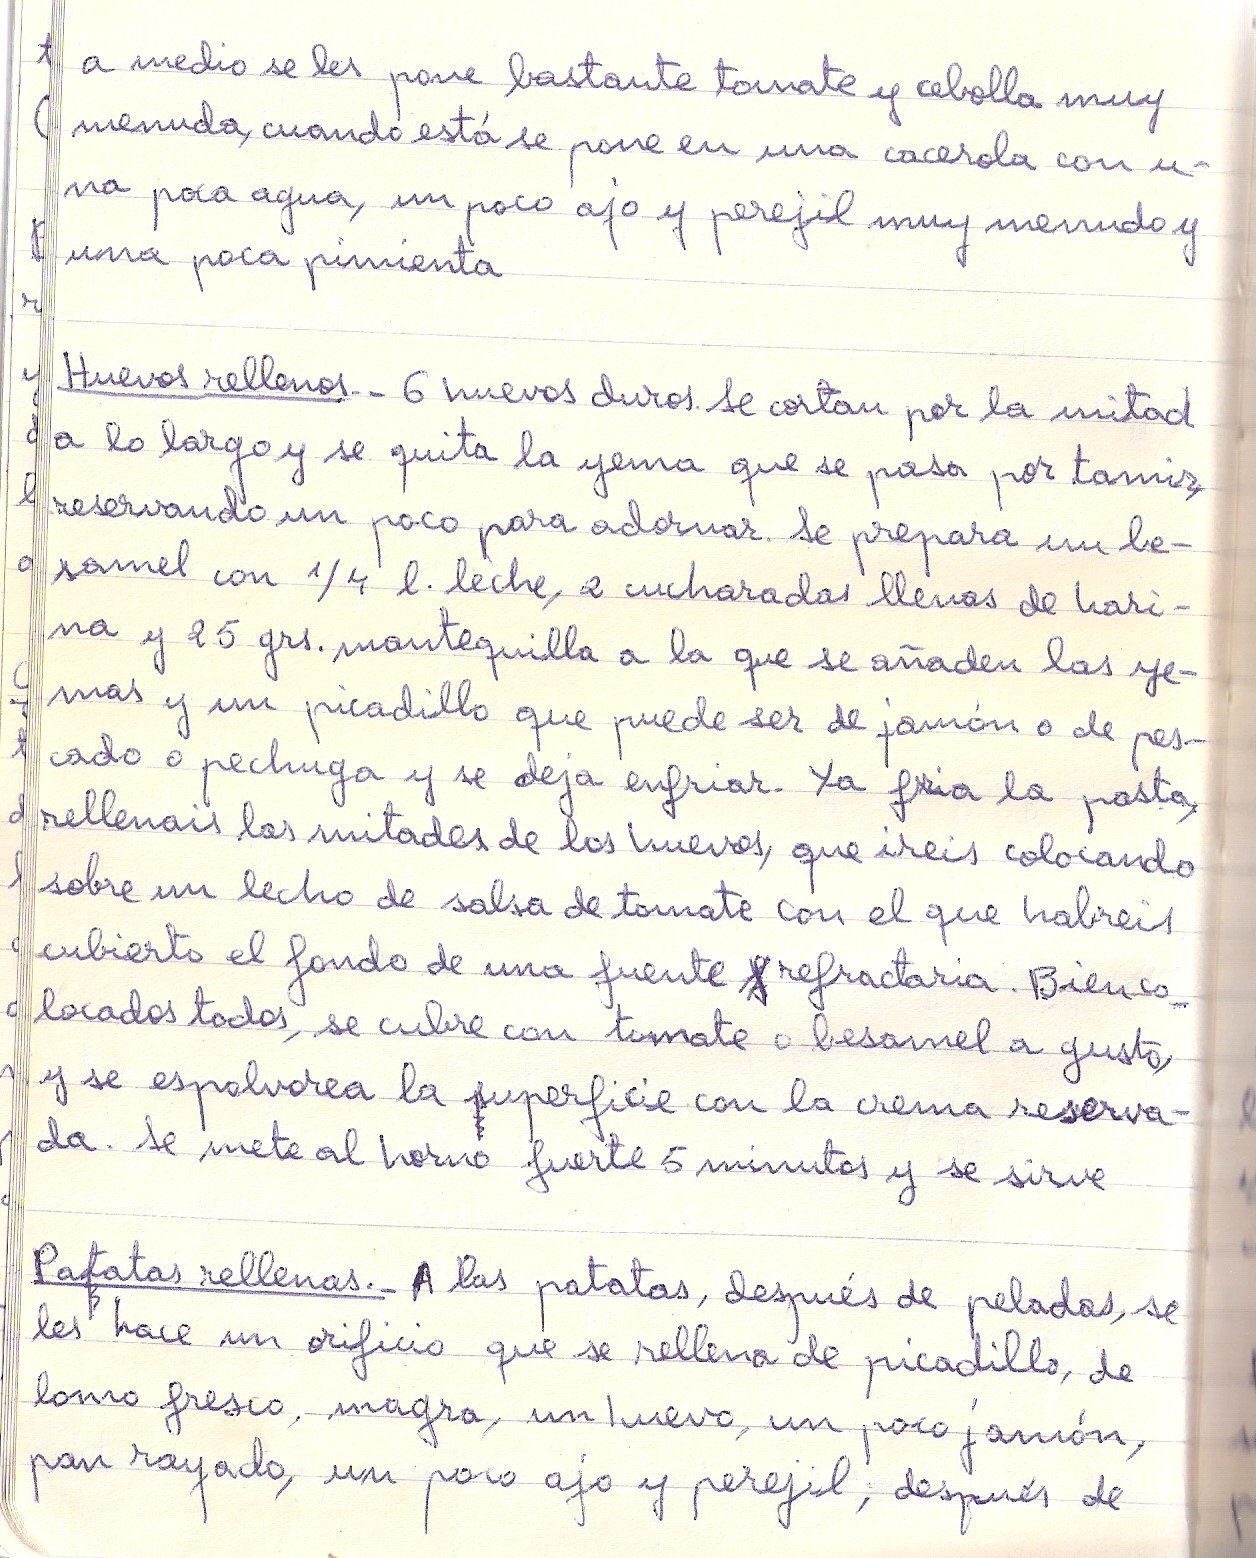 a medio se les pone bastante tomate y cebolla muy
menuda, cuando está se pone en una cacerola con u-
na poca agua, un poco ajo y perejil muy menudo y
una poca pimienta
Huevos rellenos.- 6 huevos duros. Se cortan por la mitad
a lo largo y se quita la yema que se pasa por tamiz,
reservando un poco para adornar. Se prepara un be-
samel con 1/4 l. leche, 2 cucharadas llenas de hari-
na y 25 grs. mantequilla a la que se añaden las ye-
mas y un picadillo que puede ser de jamón o de pes-
cado o pechuga y se deja enfriar. Ya fria la pasta,
rellenais las mitades de los huevos, que ireis colocando
sobre un lecho de salsa de tomate con el que habreis
cubierto el fondo de una fuente refractaria. Bien co-
locados todos, se cubre con tomate o besamel a gusto,
y se espolvorea la superficie con la crema reserva-
da. Se mete al horno fuerte 5 minutos y se sirve
Patatas rellenas.- A las patatas, después de peladas, se
les hace un orificio que se rellena de picadillo, de
lomo fresco, magra, un huevo, un poco jamón,
pan rayado, un poco ajo y perejil; después de